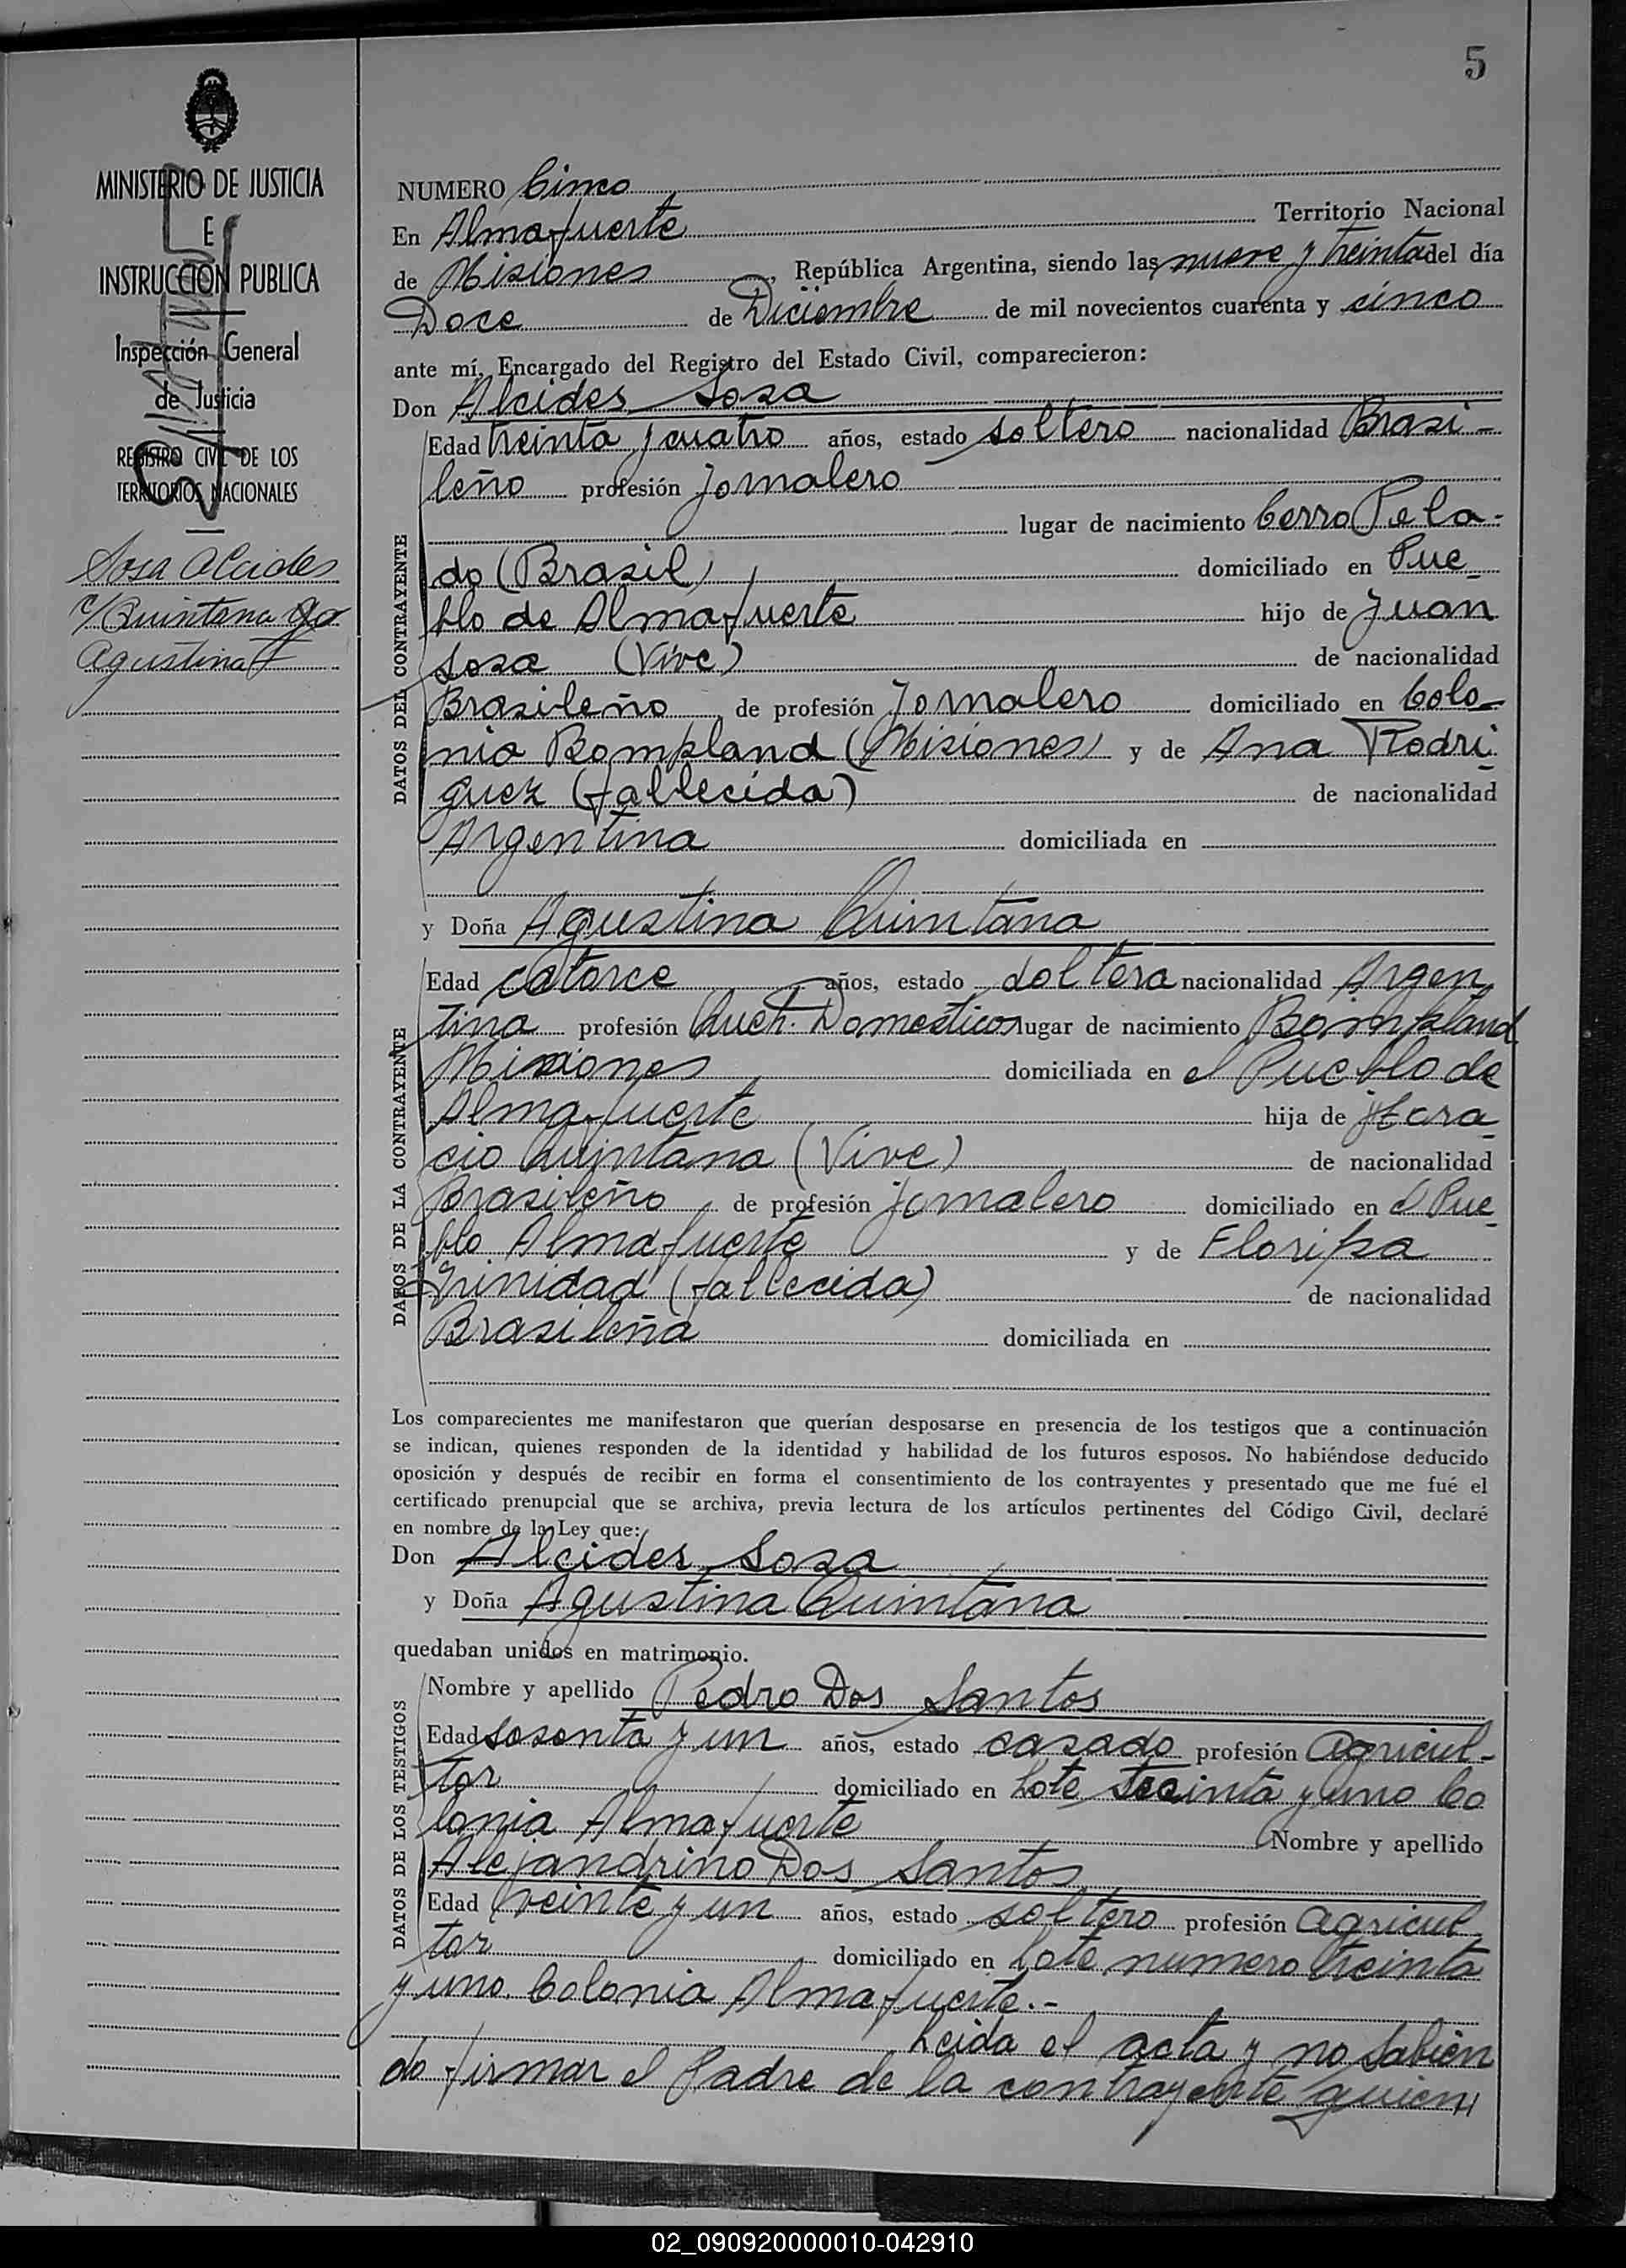 5
MINISTERIO DE JUSTICIA
E
INSTRUCCION PUBLICA
Inspección General
de Justicia
REGISTRO CIVIL DE LOS
TERRITORIOS NACIONALES
Sosa Alcides
c/ Quintana
Agustina
NUMERO Cinco
En Almafuerte Territorio Nacional
de Misiones, República Argentina, siendo las nueve y treinta del día
Doce de Diciembre de mil novecientos cuarenta y cinco
ante mí, Encargado del Registro del Estado Civil, comparecieron:
Don Alcides Sosa
DATOS DEL CONTRAYENTE
Edad treinta y cuatro años, estado soltero nacionalidad Brasi-
leño profesión Jornalero
lugar de nacimiento Cerro Pela-
do (Brasil) domiciliado en Pue-
blo de Almafuerte hijo de Juan
Sosa (Vive) de nacionalidad
Brasileño de profesión Jornalero domiciliado en Colo-
nia Bompland (Misiones) y de Ana Rodri-
guez (fallecida) de nacionalidad
Argentina domiciliada en
y Doña Agustina Quintana
DATOS DE LA CONTRAYENTE
Edad catorce años, estado soltera nacionalidad Argen
tina profesión Queh. Domesticos lugar de nacimiento Bompland
Misiones domiciliada en el Pueblo de
Almafuerte hija de Hora-
cio Quintana (Vive) de nacionalidad
Brasileño de profesión Jornalero domiciliado en el Pue-
blo Almafuerte y de Floripa
Trinidad (fallecida) de nacionalidad
Brasileña domiciliada en
Los comparecientes me manifestaron que querían desposarse en presencia de los testigos que a continuación
se indican, quienes responden de la identidad y habilidad de los futuros esposos. No habiéndose deducido
oposición y después de recibir en forma el consentimiento de los contrayentes y presentado que me fué el
certificado prenupcial que se archiva, previa lectura de los artículos pertinentes del Código Civil, declaré
en nombre de la Ley que:
Don Alcides Sosa
y Doña Agustina Quintana
quedaban unidos en matrimonio.
DATOS DE LOS TESTIGOS
Nombre y apellido Pedro Dos Santos
Edad sesenta y un años, estado casado profesión Agricul-
tor domiciliado en Lote treinta y uno Co
lonia Almafuerte Nombre y apellido
Alejandrino Dos Santos
Edad veinte y un años, estado soltero profesión Agricul
tor domiciliado en Lote numero treinta
y uno. Colonia Almafuerte.-
Leida el acta y no sabien
do firmar el Padre de la contrayente quien
02_090920000010-042910